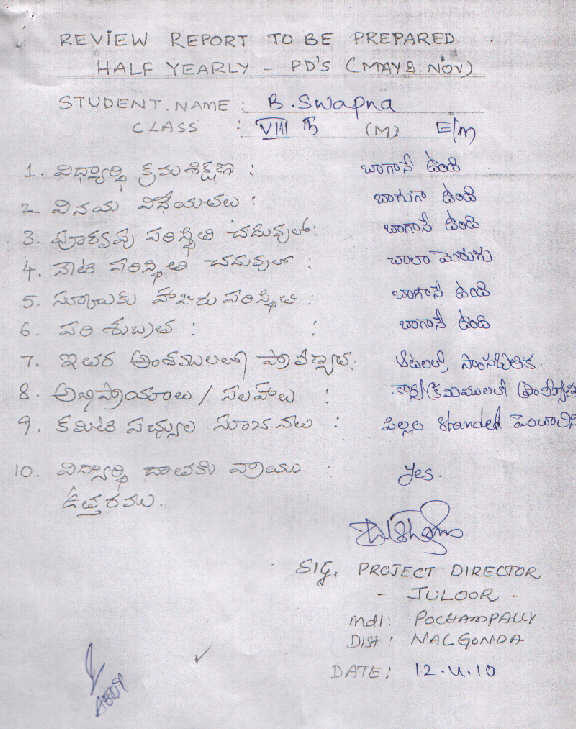 REVIEW REPORT TO BE PREPARED
HALF YEARLY - PD'S (MAY & NOV)
STUDENT.NAME : B. Swapna
CLASS : VIII th (M) E/m
1. విద్యార్థి క్రమశిక్షణ : బాగానే ఉంది
2. వినయ విదేయతలు : బాగుగా ఉంది
3. పూర్వపు పరిస్థితి చదువులో: బాగానే ఉంది
4. నేటి పరిస్థితి చదువులో : చాలా మెరుగు
5. స్కూలుకు హాజరు పరిస్థితి : బాగానే ఉంది
6. పరిశుభ్రత : : బాగానే ఉంది
7. ఇతర అంశములలో ప్రావీణ్యత:
8. అభిప్రాయాలు / సలహాలు :
9. కమిటి సభ్యుల సూచనలు : పిల్లల Standed
10. విద్యార్థి దాతకు వ్రాయు : Yes.
ఉత్తరము.
SIG. PROJECT DIRECTOR
- JULOOR -
Mdl: POCHAMPALLY
Dist: NALGONDA
DATE: 12.4.10